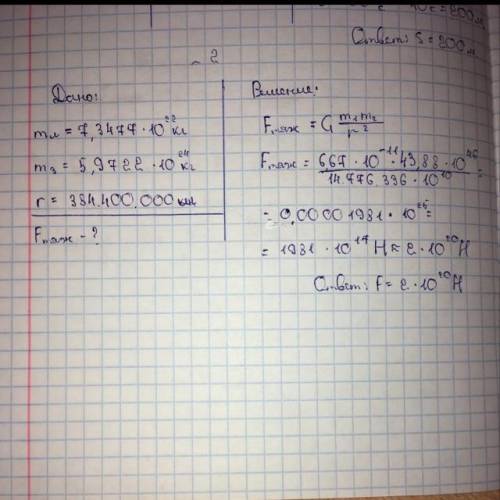 Ответ: S = 200 м
2
Дано:
mл = 7,3477 · 10²² кг
mз = 5,9722 · 10²⁴ кг
r = 384.400.000 км
Fтяж - ?
Решение:
Fтяж = G m₁m₂ / r²
Fтяж = 6,67 · 10⁻¹¹ · 43,88 · 10⁴⁶ / 14.776.336 · 10¹⁰ =
= 0,00001981 · 10²⁵ =
= 1981 · 10¹⁷ Н ≈ 2 · 10²⁰ Н
Ответ: F = 2 · 10²⁰ Н